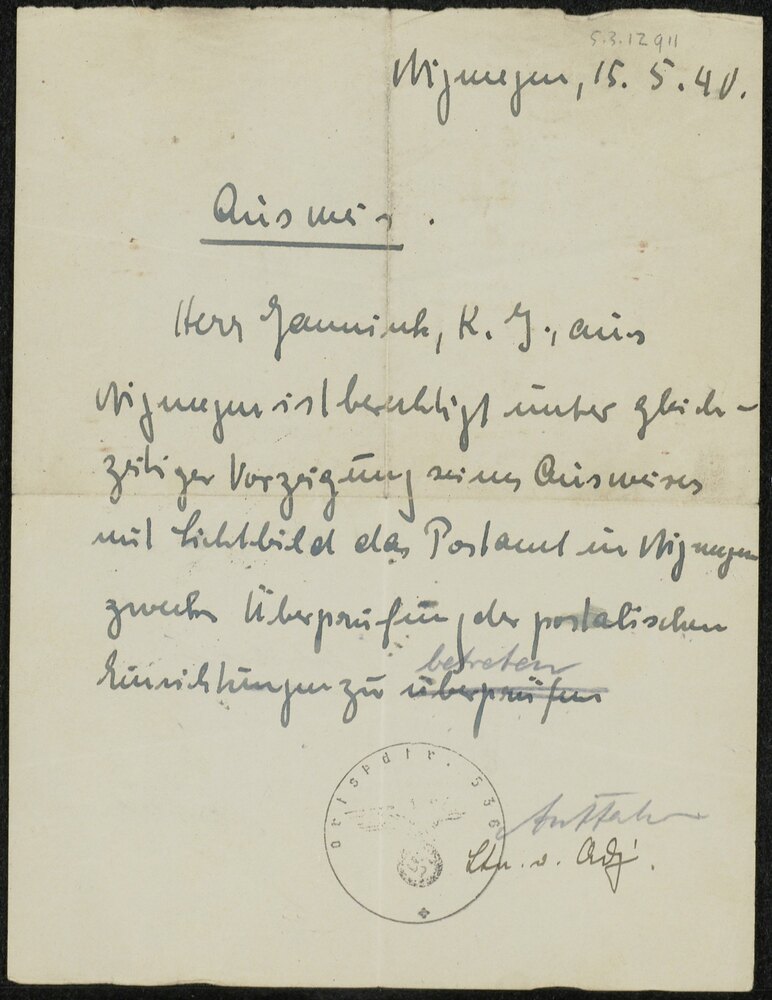 5.3.12911
Nijmegen, 15. 5. 40.
Ausweis.
Herr Jannink, K. J., aus
Nijmegen ist berechtigt unter gleich-
zeitiger Vorzeigung seines Ausweises
mit Lichtbild das Postamt in Nijmegen
zwecks Überprüfung der postalischen
betreten
Einrichtungen zu überprüfen
Ortskdtr. 536
Ltn. u. Adj.